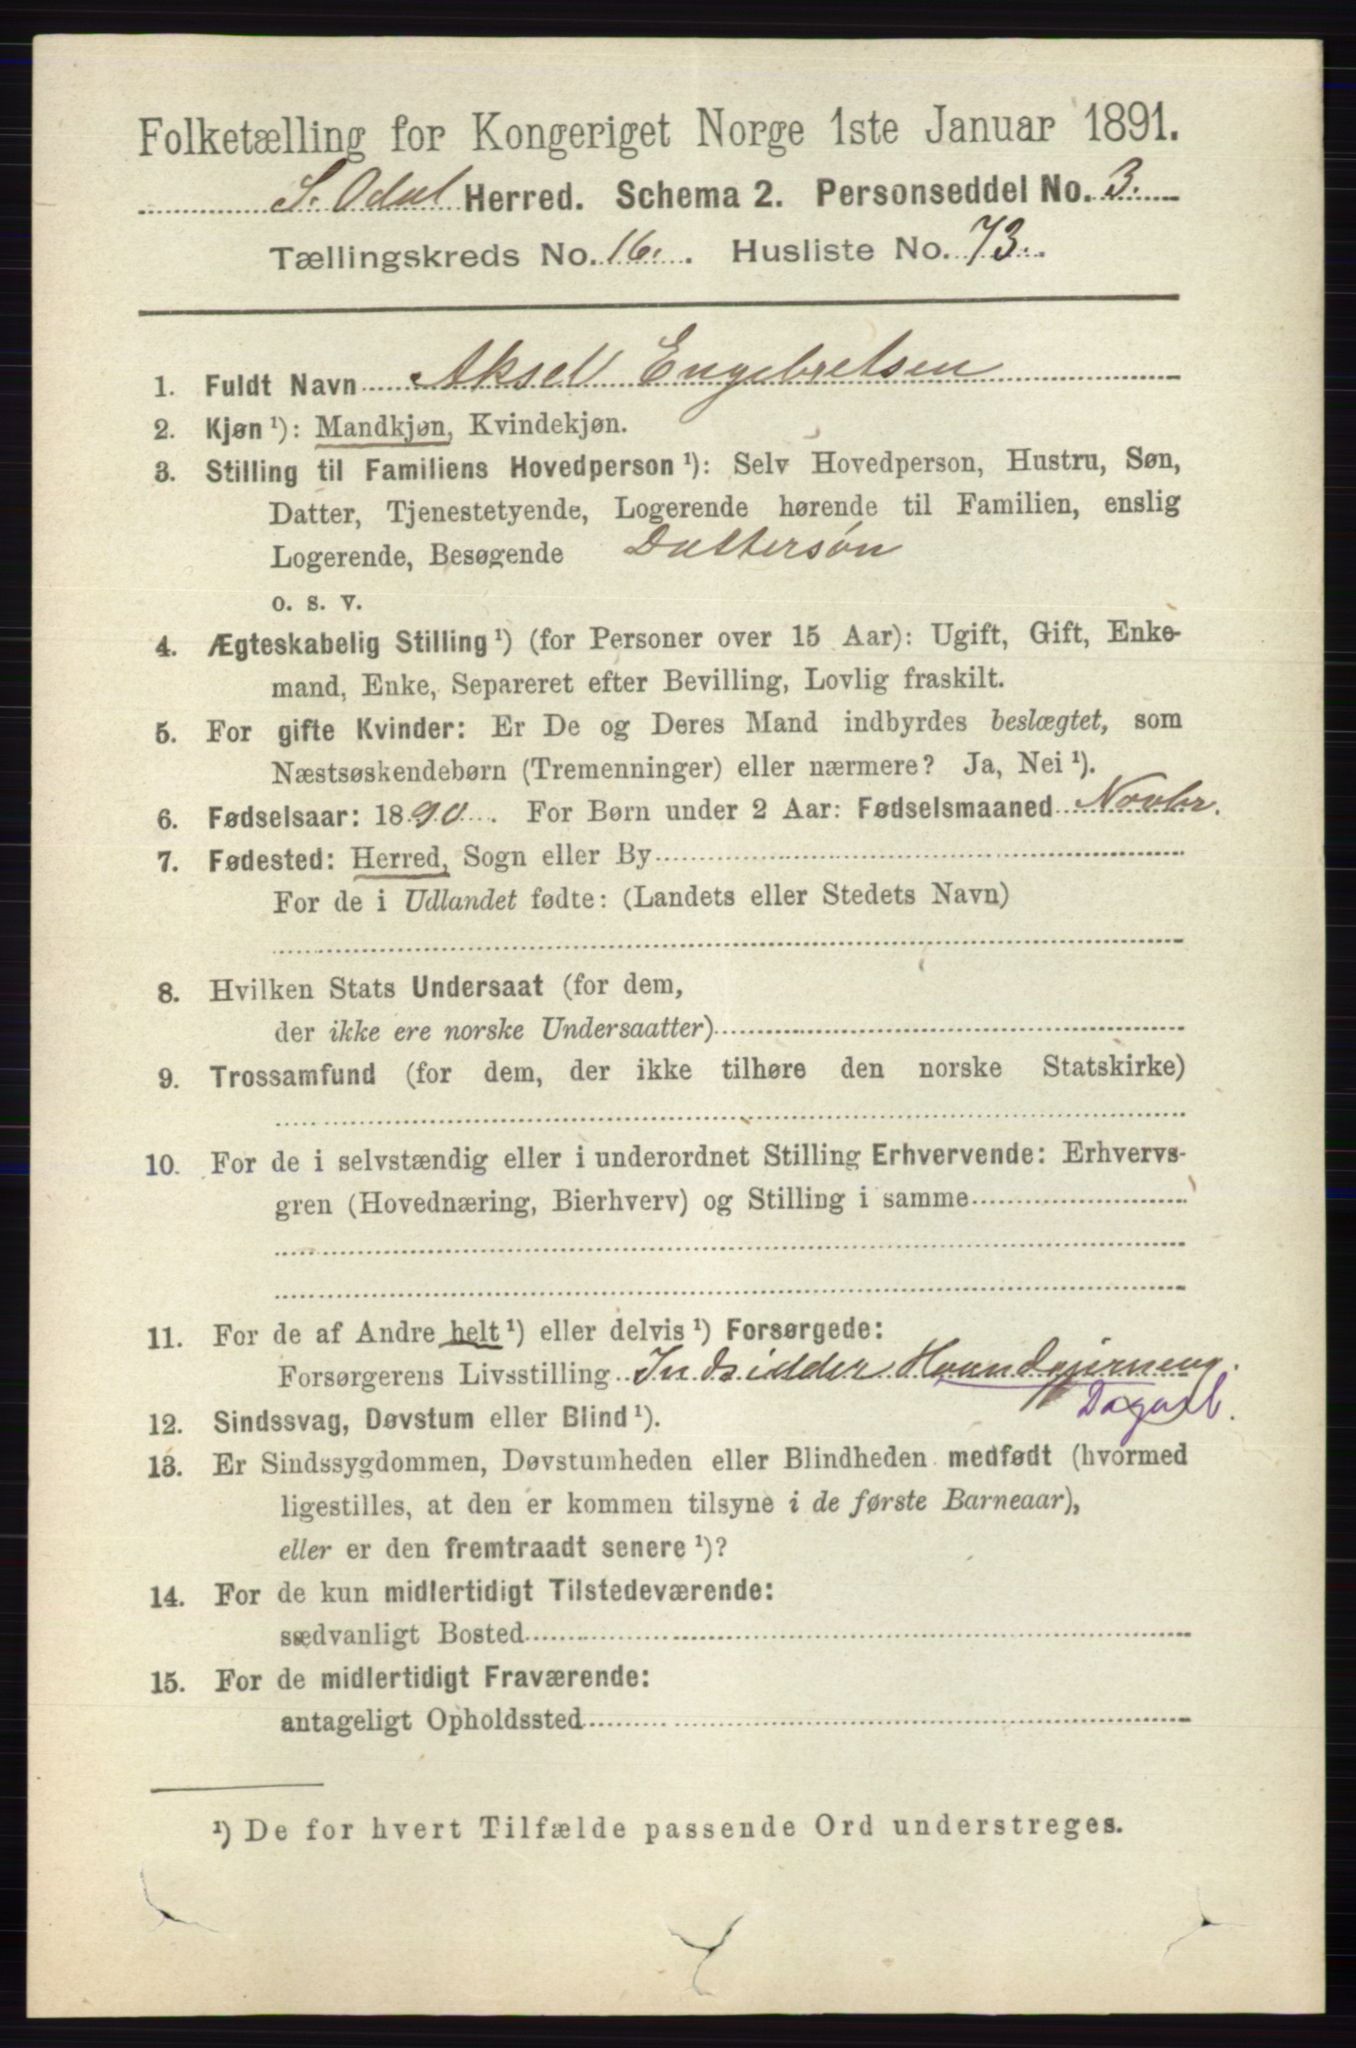 Folketælling for Kongeriget Norge 1ste Januar 1891.
S. Odal Herred. Schema 2. Personseddel No. 3.
Tællingskreds No. 16. Husliste No. 73.
1. Fuldt Navn Aksel Engebretsen
2. Kjøn ¹): Mandkjøn, Kvindekjøn.
3. Stilling til Familiens Hovedperson ¹): Selv Hovedperson, Hustru, Søn,
Datter, Tjenestetyende, Logerende hørende til Familien, enslig
Logerende, Besøgende Dattersøn
o. s. v.
4. Ægteskabelig Stilling ¹) (for Personer over 15 Aar): Ugift, Gift, Enke-
mand, Enke, Separeret efter Bevilling, Lovlig fraskilt.
5. For gifte Kvinder: Er De og Deres Mand indbyrdes beslægtet, som
Næstsøskendebørn (Tremenninger) eller nærmere? Ja, Nei ¹).
6. Fødselsaar: 1890. For Børn under 2 Aar: Fødselsmaaned Novbr.
7. Fødested: Herred, Sogn eller By
For de i Udlandet fødte: (Landets eller Stedets Navn)
8. Hvilken Stats Undersaat (for dem,
der ikke ere norske Undersaatter)
9. Trossamfund (for dem, der ikke tilhøre den norske Statskirke)
10. For de i selvstændig eller i underordnet Stilling Erhvervende: Erhvervs-
gren (Hovednæring, Bierhverv) og Stilling i samme
11. For de af Andre helt ¹) eller delvis ¹) Forsørgede:
Forsørgerens Livsstilling Indsidder
Dagarb.
12. Sindssvag, Døvstum eller Blind ¹).
13. Er Sindssygdommen, Døvstumheden eller Blindheden medfødt (hvormed
ligestilles, at den er kommen tilsyne i de første Barneaar),
eller er den fremtraadt senere ¹)?
14. For de kun midlertidigt Tilstedeværende:
sædvanligt Bosted
15. For de midlertidigt Fraværende:
antageligt Opholdssted
¹) De for hvert Tilfælde passende Ord understreges.